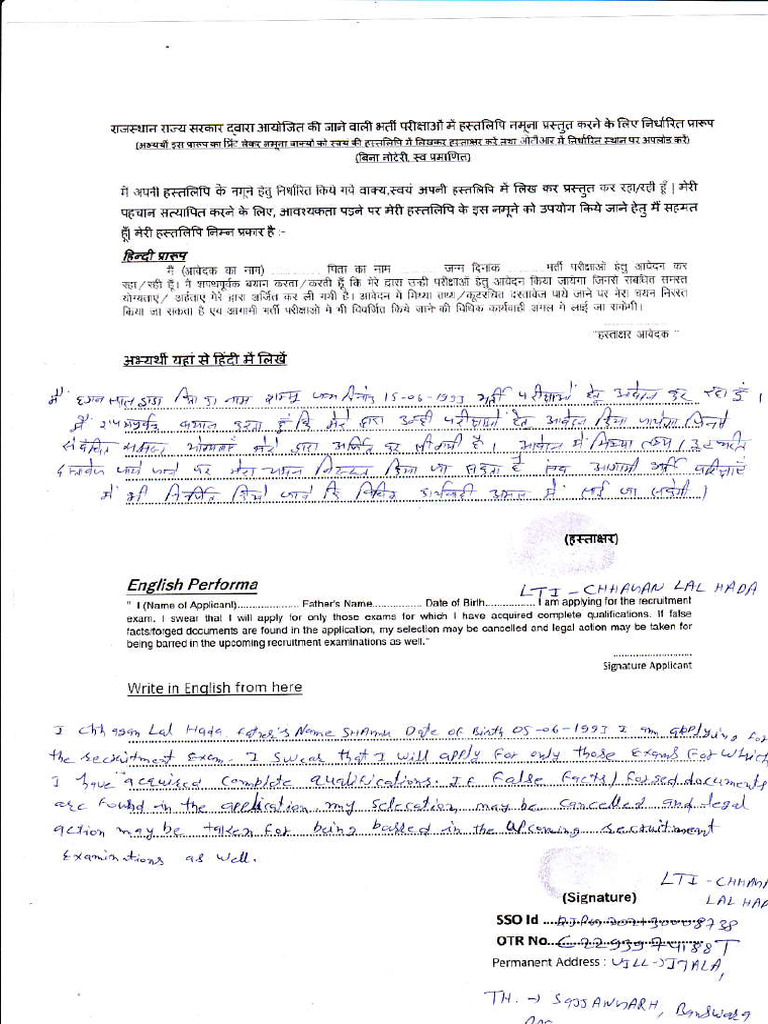 राजस्थान राज्य सरकार द्वारा आयोजित की जाने वाली भर्ती परीक्षाओं में हस्तलिपि नमूना प्रस्तुत करने के लिए निर्धारित प्रारूप
(अभ्यर्थी इस प्रारूप का प्रिंट लेकर नमूना वाक्यों को स्वयं की हस्तलिपि में लिखकर हस्ताक्षर करे तथा ओटीआर में निर्धारित स्थान पर अपलोड करें)
(बिना नोटेरी, स्व प्रमाणित)
में अपनी हस्तलिपि के नमूने हेतु निर्धारित किये गये वाक्य,स्वयं अपनी हस्तलिपि में लिख कर प्रस्तुत कर रहा/रही हूँ | मेरी
पहचान सत्यापित करने के लिए, आवश्यकता पड़ने पर मेरी हस्तलिपि के इस नमूने को उपयोग किये जाने हेतु मैं सहमत
हूँ| मेरी हस्तलिपि निम्न प्रकार है :-
हिन्दी प्रारूप
मैं (आवेदक का नाम) ............ पिता का नाम ............ जन्म दिनांक ............ भर्ती परीक्षाओं हेतु आवेदन कर
रहा/रही हूँ। मैं शपथपूर्वक बयान करता/करती हूँ कि मेरे द्वारा उन्ही परीक्षाओं हेतु आवेदन किया जायेगा जिनसे संबंधित समस्त
योग्यताए/ अर्हताए मेरे द्वारा अर्जित कर ली गयी है। आवेदन मे मिथ्या तथ्य/कूटरचित दस्तावेज पाये जाने पर मेरा चयन निरस्त
किया जा सकता है एवं आगामी भर्ती परीक्षाओं मे भी विवर्जित किये जाने की विधिक कार्यवाही अमल मे लाई जा सकेगी।
हस्ताक्षर आवेदक
अभ्यर्थी यहां से हिंदी में लिखें
मैं छगन लाल हाडा पिता का नाम शम्भु जन्म दिनांक 15-06-1993 भर्ती परीक्षाओं हेतु आवेदन कर रहा हूँ।
मैं शपथपूर्वक बयान करता हूँ कि मेरे द्वारा उन्ही परीक्षाओं हेतु आवेदन किया जायेगा जिनसे
संबंधित समस्त योग्यताएँ मेरे द्वारा अर्जित कर ली गयी है। आवेदन में मिथ्या तथ्य/कूटरचित
दस्तावेज पाये जाने पर मेरा चयन निरस्त किया जा सकता है एवं आगामी भर्ती परीक्षाओं
में भी विवर्जित किये जाने कि विधिक कार्यवाही अमल में लाई जा सकेगी।
(हस्ताक्षर)
LTI - CHHAGAN LAL HADA
English Performa
" I (Name of Applicant).................... Father's Name................ Date of Birth................ I am applying for the recruitment
exam. I swear that I will apply for only those exams for which I have acquired complete qualifications. If false
facts/forged documents are found in the application, my selection may be cancelled and legal action may be taken for
being barred in the upcoming recruitment examinations as well."
Signature Applicant
Write in English from here
I Chhagan Lal Hada Father's Name SHAMBHU Date of Birth 05-06-1993 I am applying for
the recruitment Exam. I swear that I will apply for only those Exams For Which
I have acquired complete qualifications. If False Facts/ Forged documents
are found in the application my selecration may be cancelled and legal
action may be taken for being barred in the upcoming recruitment
Examinations as well.
LTI - CHHAGA
LAL HAD
(Signature)
SSO Id
OTR No.
Permanent Address : VILL-ITALA,
TH. → SAJJANGARH, Banswara